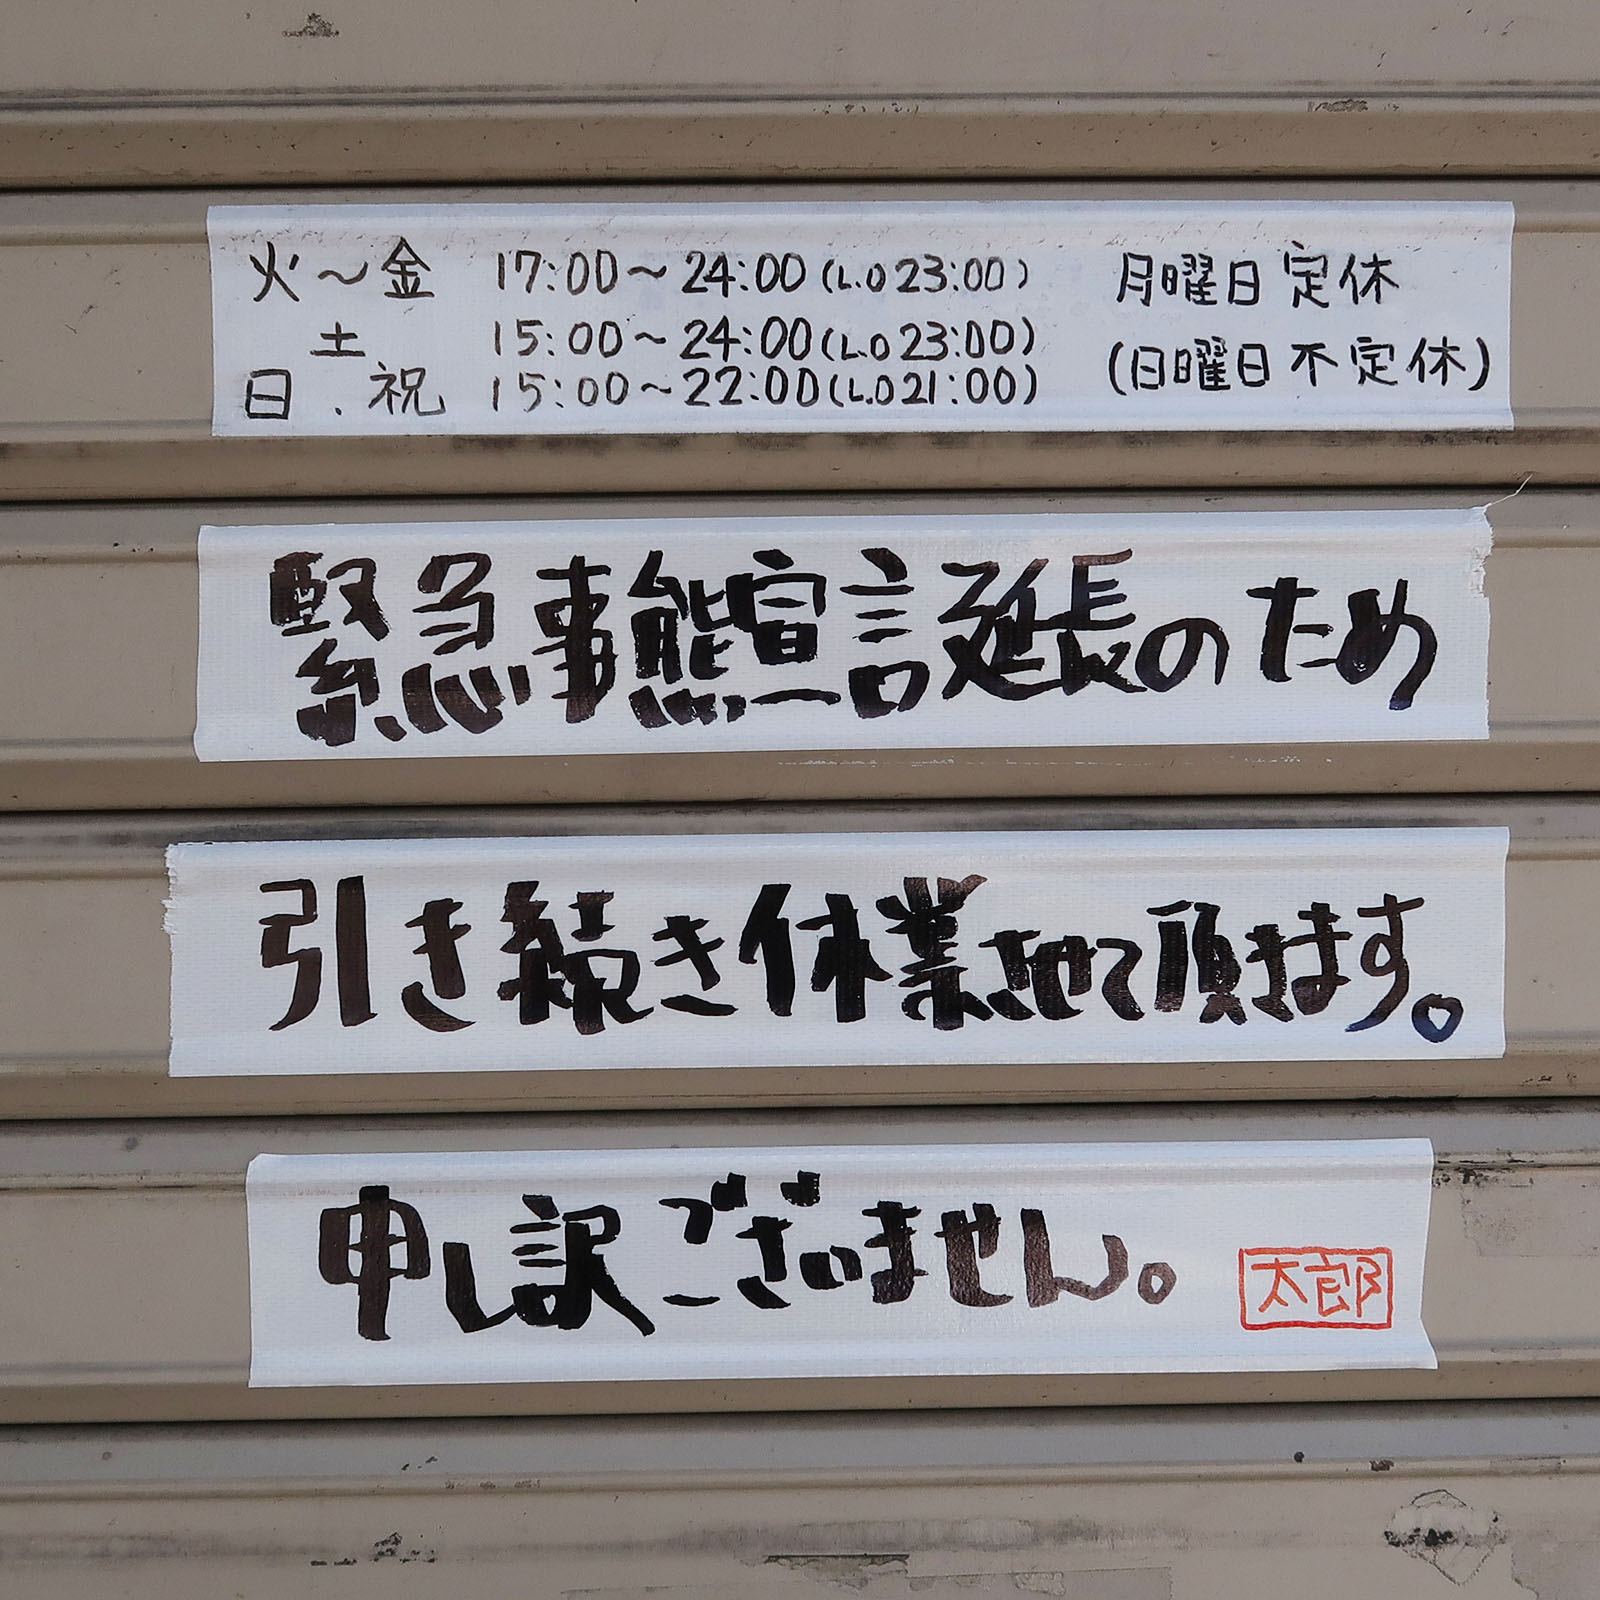 火～金 17:00～24:00(L.O 23:00) 月曜日定休
土 15:00～24:00(L.O 23:00)
日.祝 15:00～22:00(L.O 21:00) (日曜日不定休)
緊急事態宣言延長のため
引き続き休業させて頂きます。
申し訳ございません。 太郎